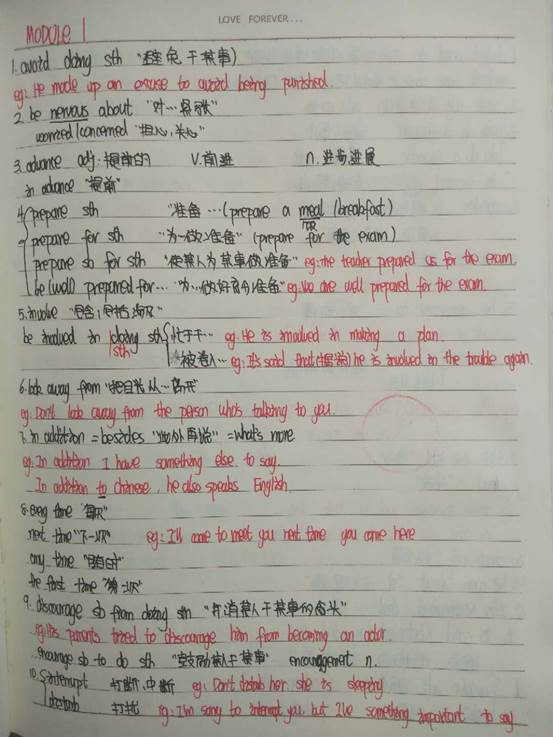 LOVE FOREVER...
MODULE 1
1. avoid doing sth "避免干某事)
eg: He made up an excuse to avoid being punished.
2. be nervous about "对…紧张"
worried/concerned "担心,关心"
3. advance adj. 提前的 v. 前进 n. 进步,进展
in advance "提前"
4. prepare sth "准备…(prepare a meal /breakfast)
prepare for sth "为…做准备" (prepare for the exam)
prepare sb for sth "使某人为某事做准备" eg: the teacher prepared us for the exam.
be (well) prepared for… "为…做好充分准备" eg: We are well prepared for the exam
5. involve "包含,包括,涉及"
be involved in doing sth 忙于干… eg: He is involved in making a plan.
/sth "被卷入… eg: It's said that(据说) he is involved in the trouble again.
6. look away from "把目光从…离开"
eg: Don't look away from the person who's talking to you.
7. in addition = besides "此外再说" = what's more
eg: In addition I have something else to say.
In addition to chinese, he also speaks English.
8. every time "每次"
next time "下一次" eg: I'll come to meet you next time you come here
any time "随时"
the first time "第一次"
9. discourage sb from doing sth "打消某人干某事的念头"
eg: His parents tried to discourage him from becoming an actor.
encourage sb to do sth "鼓励某人干某事" encouragement n.
10. interrupt 打断,中断 eg: Don't disturb her. she is sleeping
disturb 打扰 eg: I'm sorry to interrupt you, but I've something important to say